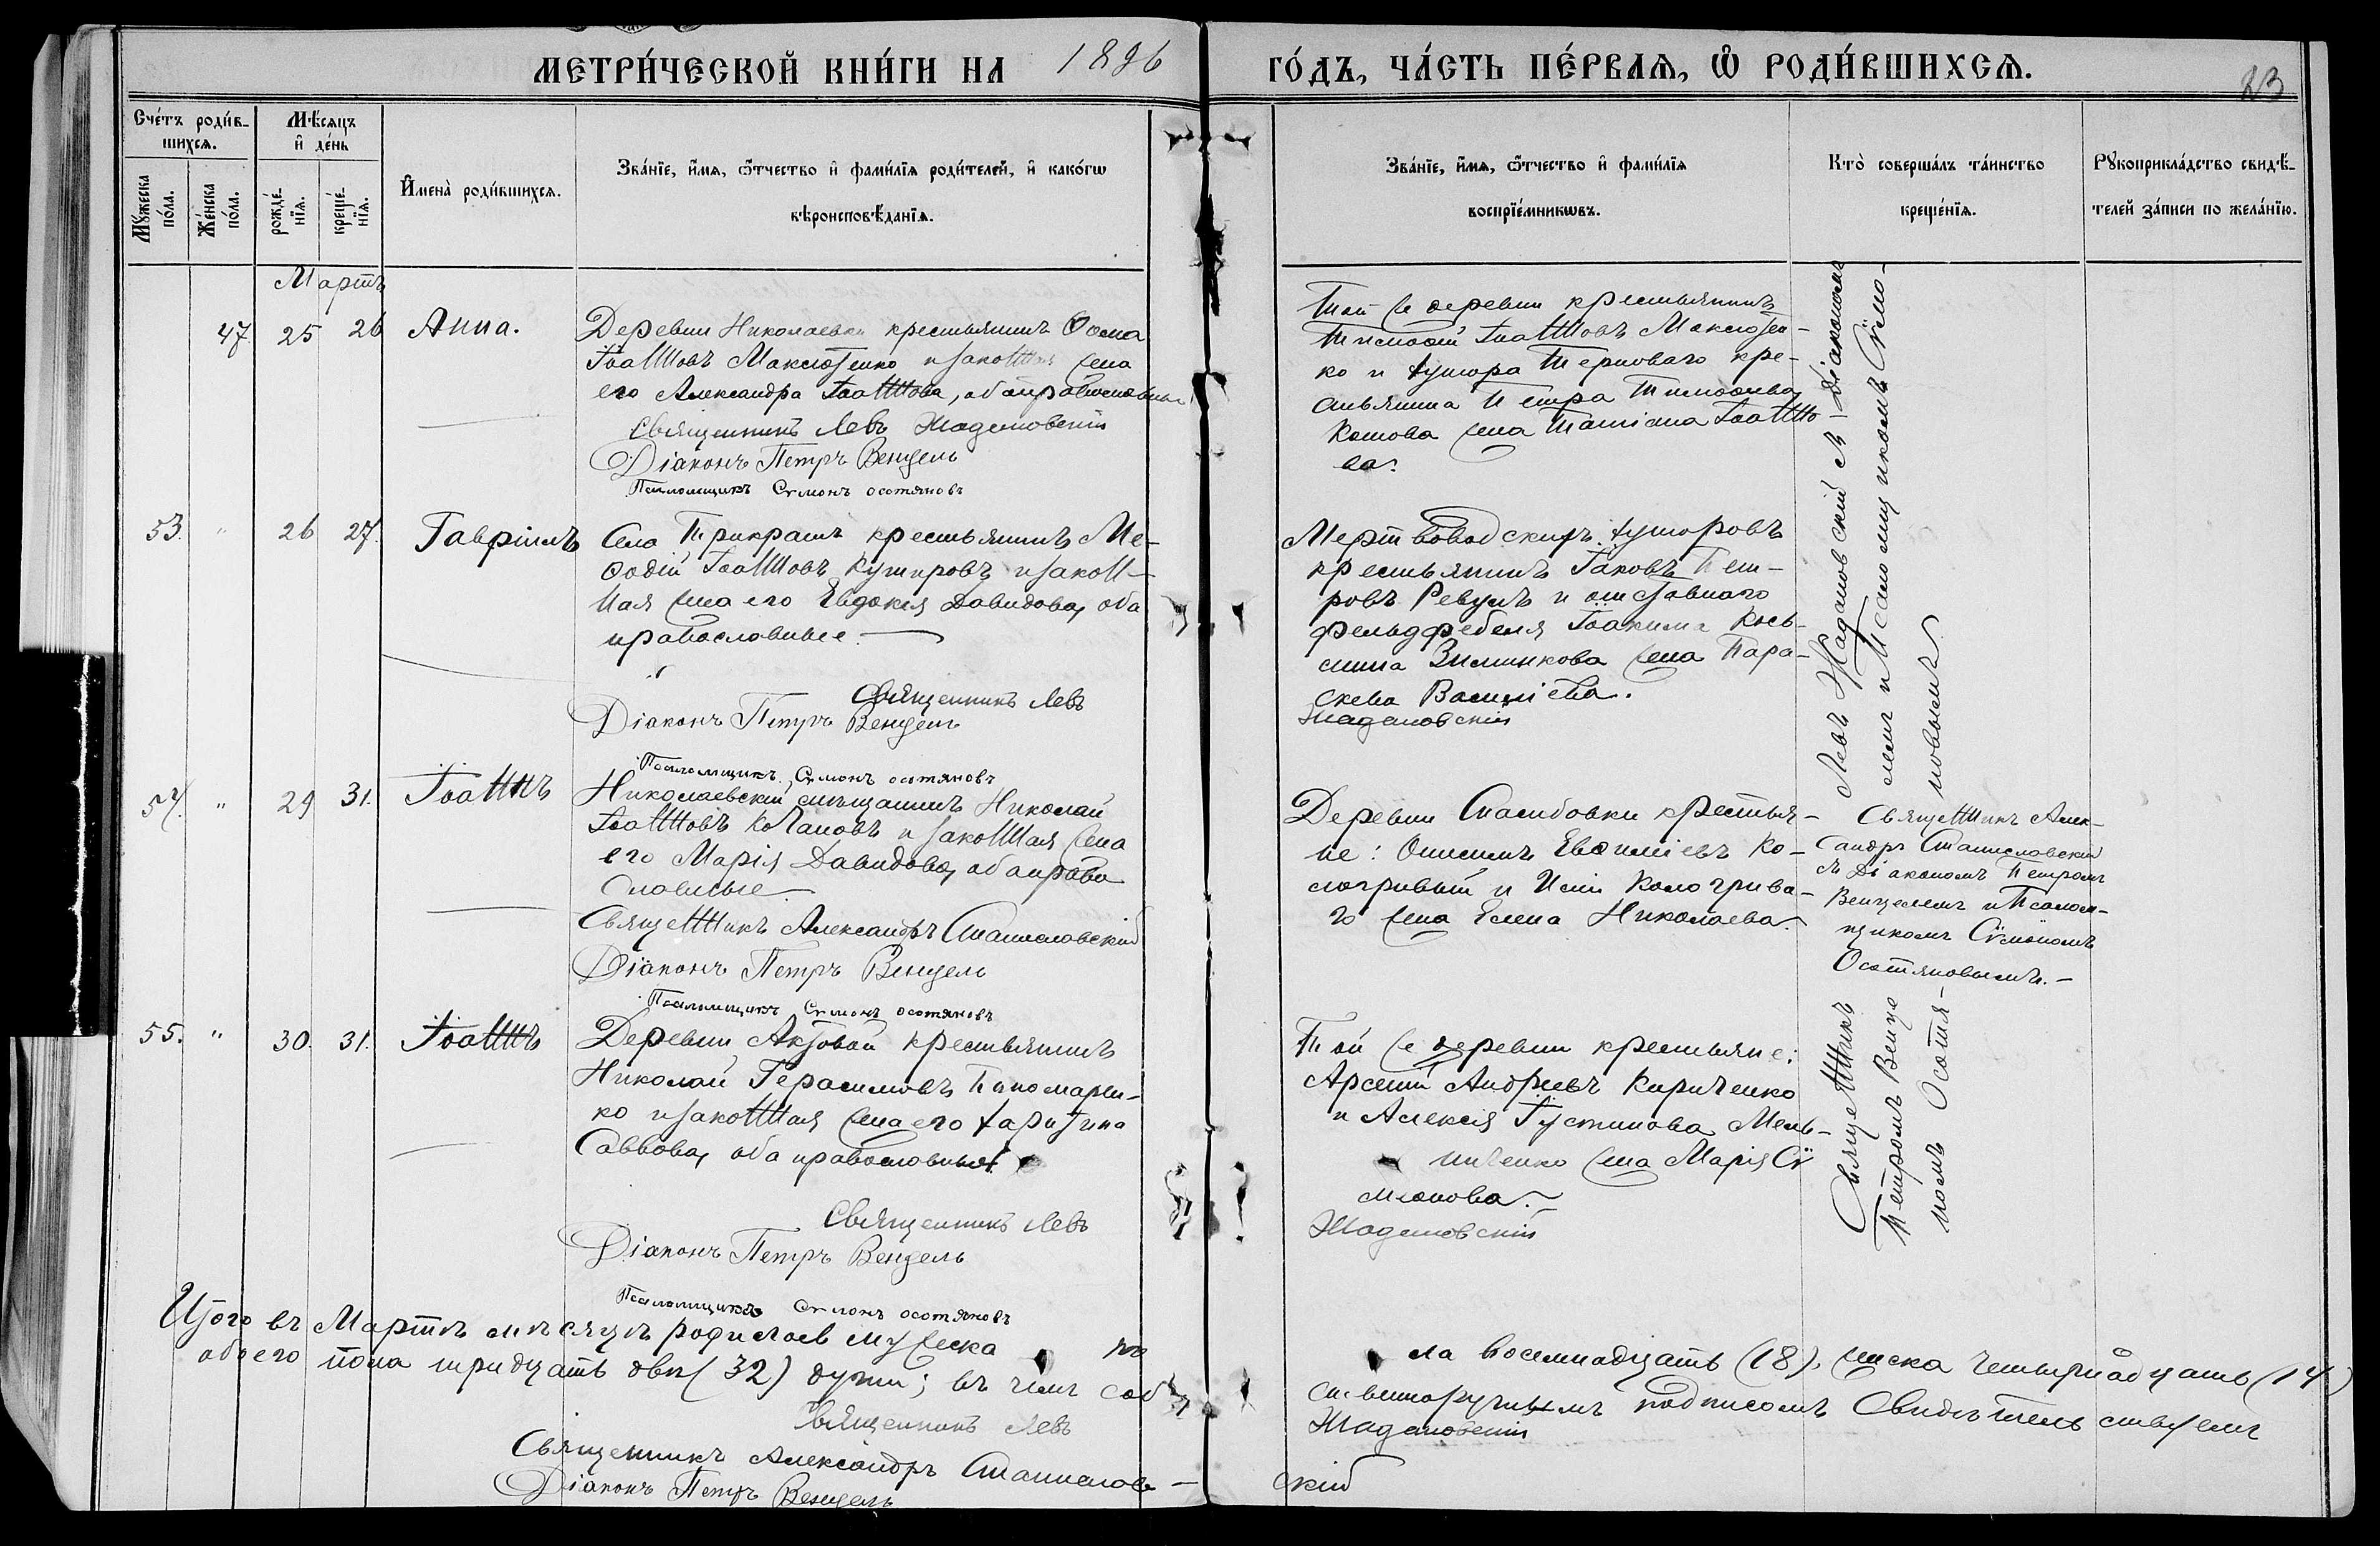 МЕТРИ́ЧЕСКОЙ КНИ́ГИ НА 1896 ГО́ДЪ, ЧА́СТЬ ПЕ́РВАѦ, Ѡ РОДИ́ВШИХСѦ.
23
Сче́тъ роди́в-
шихсѧ.
Мꙋ́жеска
по́ла.
Же́нска
по́ла.
Мѣ́сѧцъ
и҆ де́нь
рожде́-
нїѧ.
креще́-
нїѧ.
И҆мена̀ роди́вшихсѧ.
Зва́нїе, и҆́мѧ, ѻ҆́тчество и҆ фами́лїѧ роди́телей, и҆ како́гѡ
вѣроисповѣ́данїѧ.
Зва́нїе, и҆́мѧ, ѻ҆́тчество и҆ фами́лїѧ
воспрїе́мникѡвъ.
Кто̀ соверша́лъ та́инство
креще́нїѧ.
Рꙋкоприкла́дство свидѣ́-
телей за́писи по жела́нїю.
Мартъ
47 25 26 Анна.
Деревни Николаевки крестьянинъ Ѳома
Іоанновъ Максютенко и законная жена
его Александра Іоаннова, оба православные
Священникъ Левъ Жадановскій
Діаконъ Петръ Венцель
Псаломщикъ Сѵмонъ Осотяновъ
Той же деревни крестьянинъ
Тимоѳей Іоанновъ Максютен-
ко и хутора Терноваго кре-
стьянина Петра Тимоѳеева
жена Татіана Іоанно-
ва.
53. " 26 27. Гавріилъ
Села Трикратъ крестьянинъ Ме-
ѳодій Іоанновъ Кушнровъ и закон-
ная жена его Евдокія Давидова, оба
православные
Священникъ Левъ
Жадановскій
Діаконъ Петръ Венцель
Псаломщикъ Сѵмонъ Осотяновъ
Мертвоводскихъ хуторовъ
крестьянинъ Іаковъ Пет-
ровъ Ревунъ и отставнаго
фельдфебеля Іоакима Кось-
мина Зиминкова жена Пара-
скева Василіева.
Левъ Жадановскій съ Діакономъ
и Псаломщикомъ Сѵмо-
новымъ
54. " 29 31. Іоаннъ
Николаевскій мѣщанинъ Николай
Іоанновъ Кочановъ и законная жена
его Марія Давидова, оба право
славные
Священникъ Александръ Станиславскій
Діаконъ Петръ Венцель
Псаломщикъ Сѵмонъ Осотяновъ
Деревни Спасибовки крестья-
не: Онисимъ Евѳиміевъ Ко-
логривый и Кологрива-
го жена Елена Николаева.
Священникъ Алек-
сандръ Станиславскій
съ Діакономъ Петромъ
Венцелемъ и Псалом-
щикомъ Сѵмономъ
Осотяновымъ.-
55. " 30. 31. Іоаннъ
Деревни Актовой крестьянинъ
Николай Герасимовъ Пономарен-
ко и законная жена его Харитина
Саввова, оба православныя
Священникъ Левъ
Жадановскій
Діаконъ Петръ Венцель
Псаломщикъ Сѵмонъ Осотяновъ
Той же деревни крестьяне:
Арсеній Андреевъ Кириченко
и Алексія Іустинова Мель-
ниченко жена Марія Сѵ
меонова.
Священникъ
Петромъ Венце
Осотя-
Итого въ Мартѣ мѣсяцѣ родилось мужеска по
ла восемнадцать (18), женска четырнадцать (14)
обоего пола тридцать двѣ (32) души; въ чемъ соб
ственноручнымъ подписомъ свидѣтельствуемъ
Священникъ Левъ
Жадановскій
Священникъ Александръ Станислав-
скій
Діаконъ Петръ Венцель